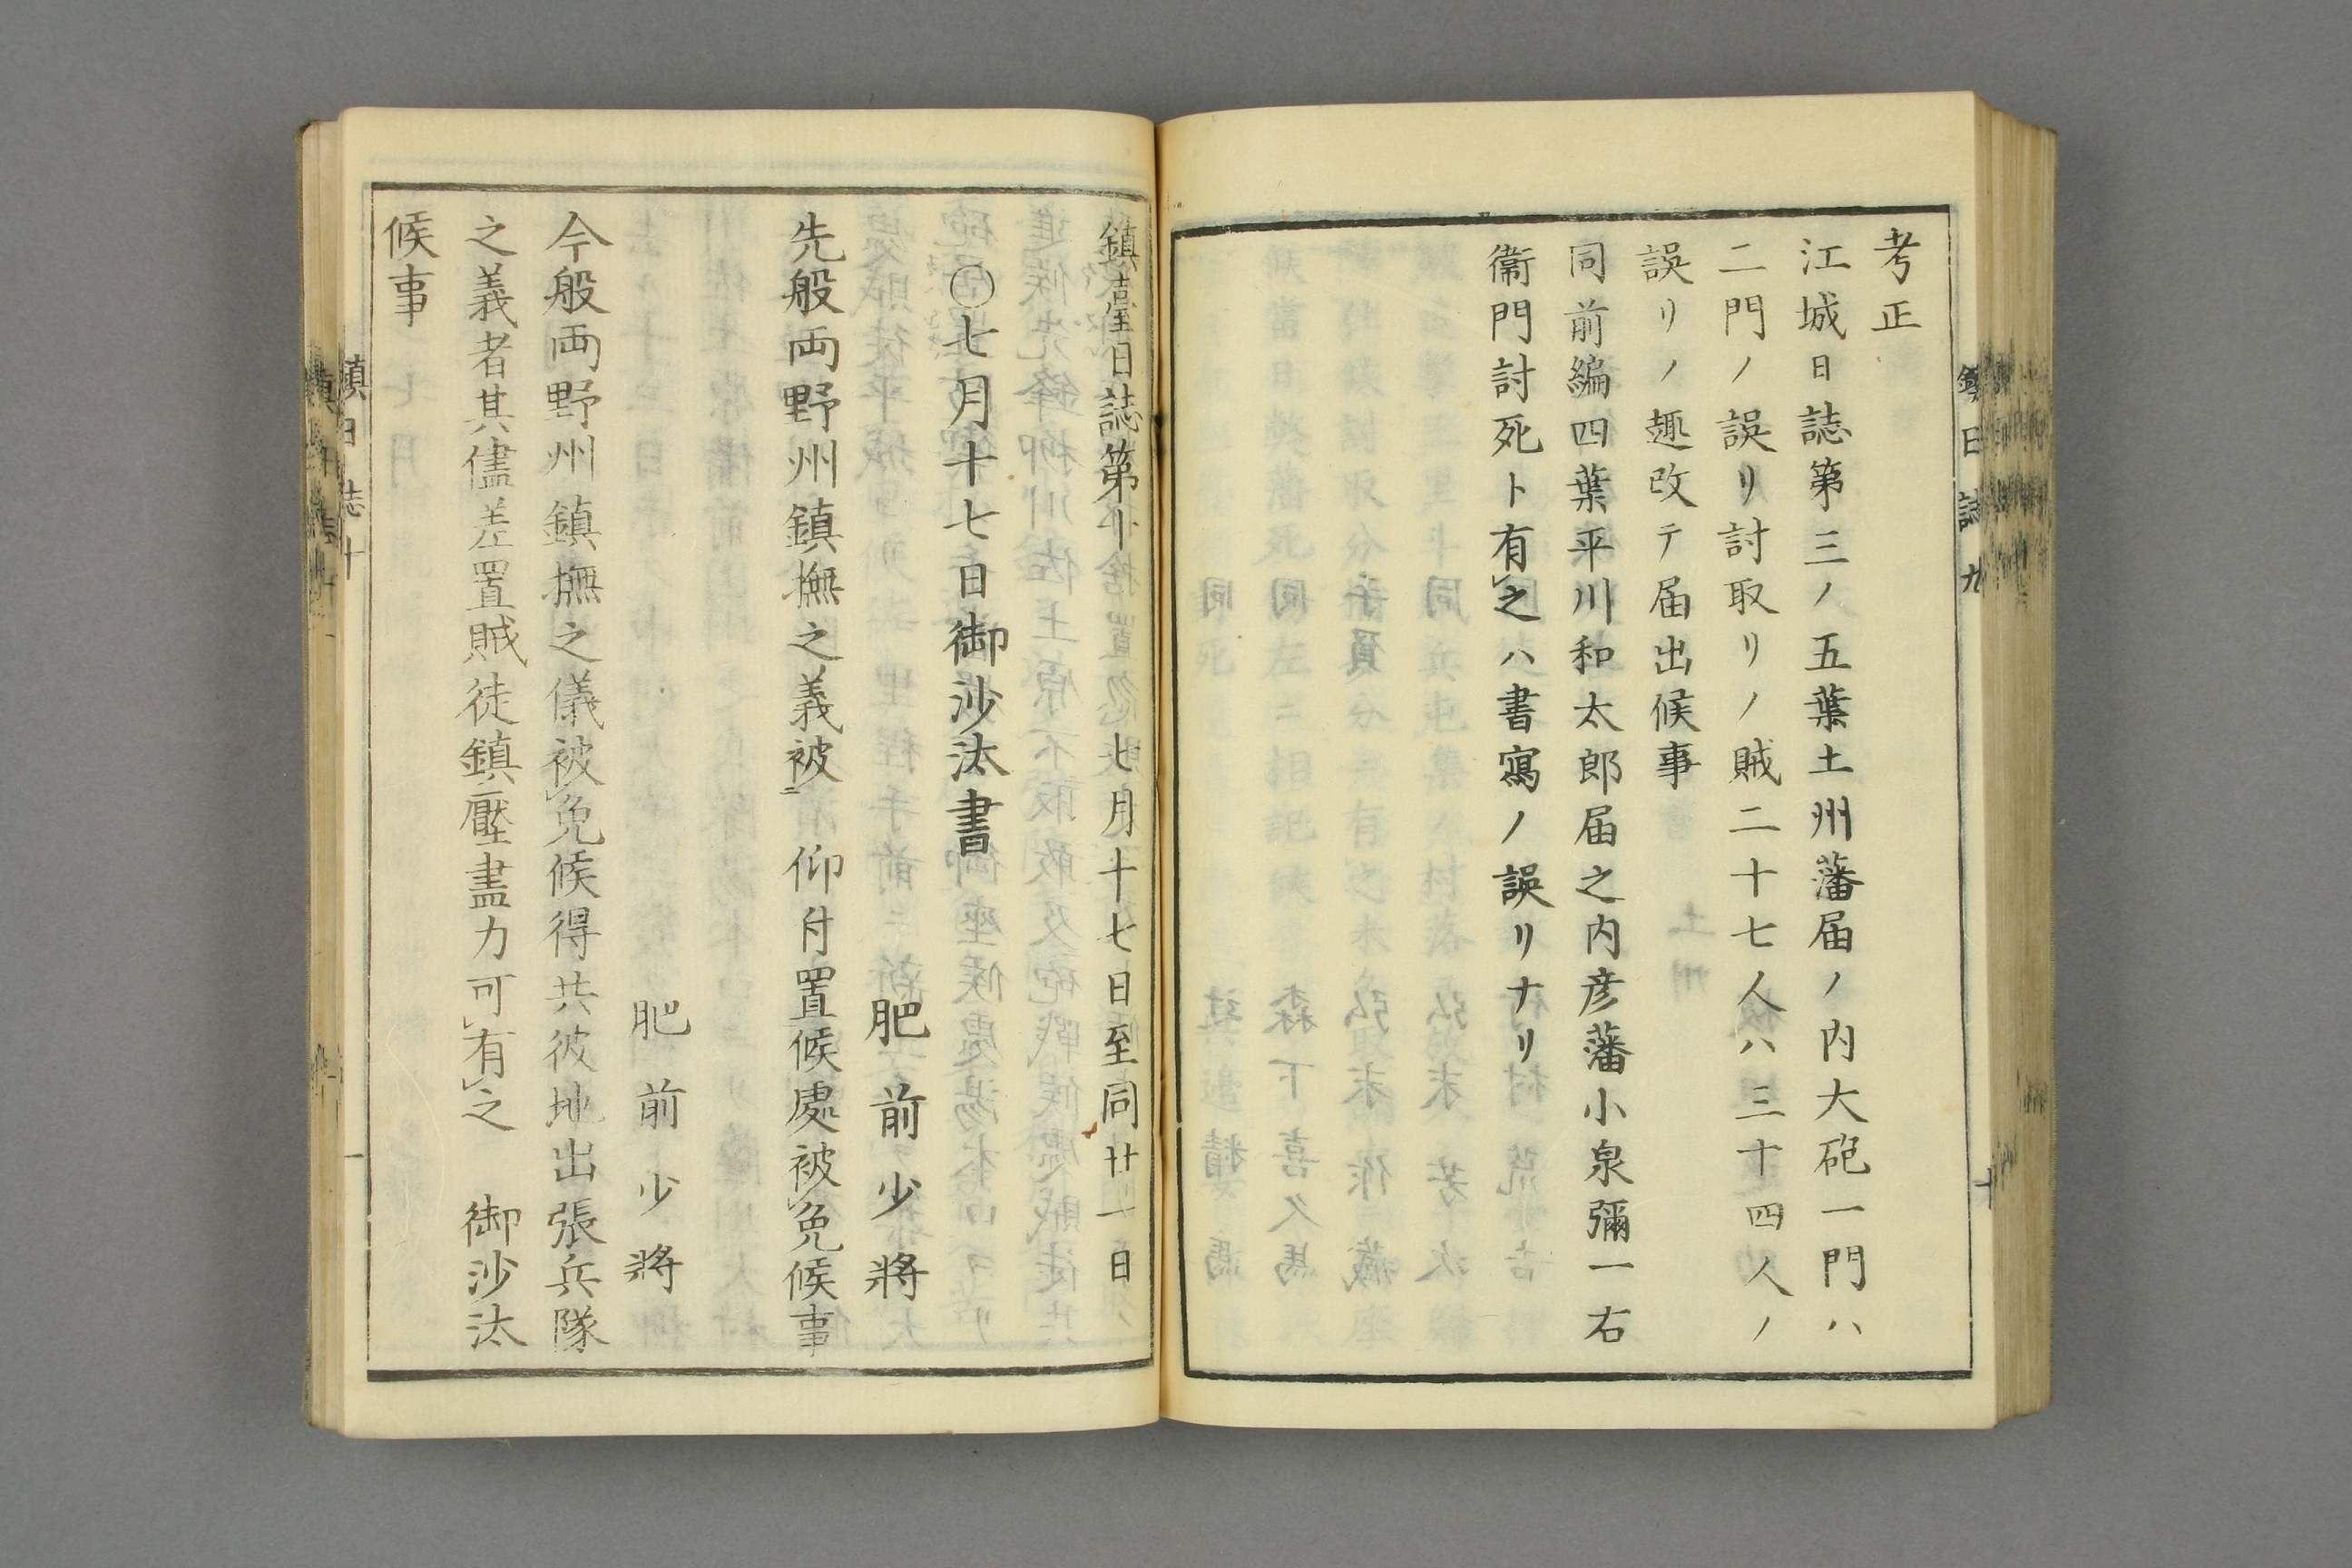 考正
江城日誌第三ノ五葉土州藩届ノ内大砲一門ハ
二門ノ誤リ討取リノ賊二十七人ハ三十四人ノ
誤リノ趣改テ届出候事
同前編四葉平川和太郎届之内彦藩小泉彌一右
衞門討死ト有之ハ書寫ノ誤リナリ
鎮日誌九
十
鎮臺日誌第十
七月十七日至同廿一日
〇七月十七日御沙汰書
肥前少將
先般両野州鎮撫之義被仰付置候處被免候事
肥前少將
今般両野州鎮撫之儀被免候得共彼地出張兵隊
之義者其儘差置賊徒鎮壓盡力可有之御沙汰
候事
鎮日誌十
一